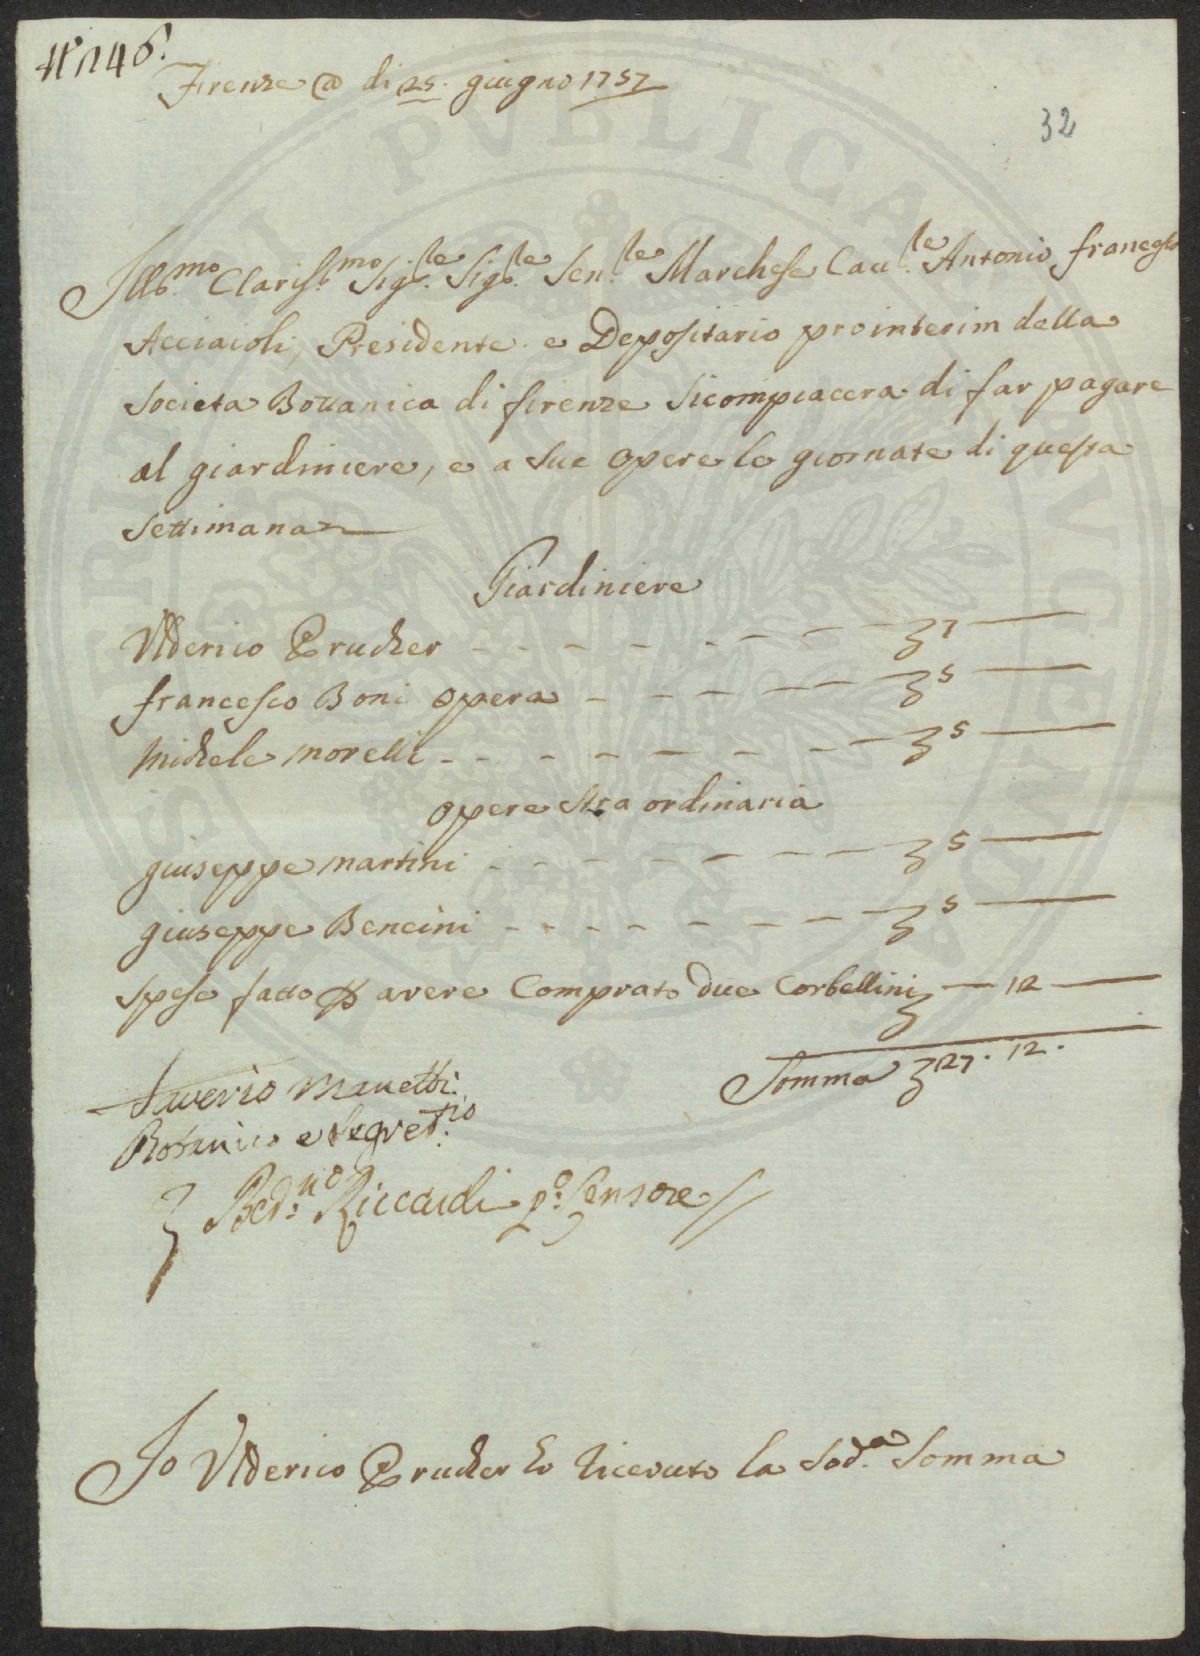 N° 146.
Firenze @ di 25. giugno 1757
32
Illo.mo Clariss.mo Sig.le Sigo.le Sen.le Marchese Cau.le Antonio franceso
Acciaioli, Presidente e Depositario prointerim della
Societa Bottanica di firenze Sicompiacera di far pagare
al giardiniere, e a Sue Opere le giornate di questa
Settimana
Giardiniere
Ulderico Prucher - - - - - - - 7 —
francesco Boni Opera - - - - - - 5 —
Michele Morelli - - - - - - - 5 —
Opere Stra ordinaria
giuseppe Martini - - - - - - - 5 —
giuseppe Bencini - - - - - - - 5 —
Spese fatto p avere Comprato due Corbellini — 12 —
Somma 27. 12.
Saverio Manetti
Botanico e Segret.rio
Ber.no Riccardi p.o Censore
Io Ulderico Prucher ho riceuuto la Sod.a Somma